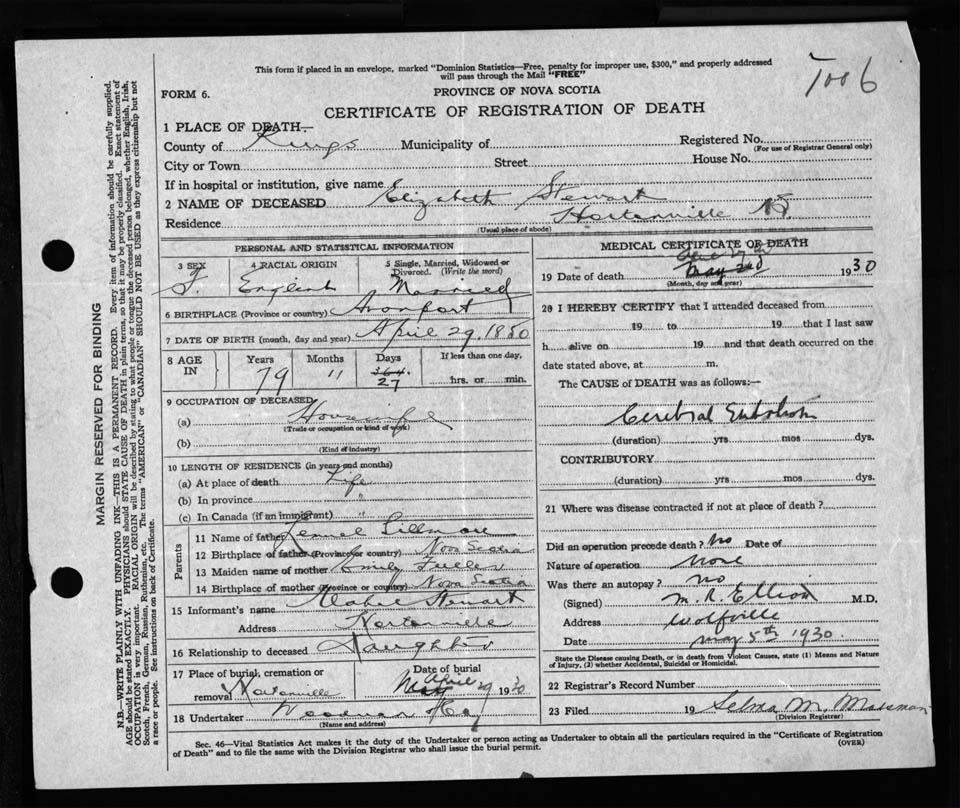 This form if placed in an envelope, marked "Dominion Statistics—Free, penalty for improper use, $300," and properly addressed
will pass through the Mail "FREE"
FORM 6.
PROVINCE OF NOVA SCOTIA
CERTIFICATE OF REGISTRATION OF DEATH
1 PLACE OF DEATH—
County of Kings Municipality of Registered No.
(For use of Registrar General only)
City or Town Street House No.
If in hospital or institution, give name
2 NAME OF DECEASED Elizabeth Stewart
Residence Hortonville NS
(Usual place of abode)
PERSONAL AND STATISTICAL INFORMATION
3 SEX 4 RACIAL ORIGIN 5 Single, Married, Widowed or Divorced. (Write the word)
F. English Married
6 BIRTHPLACE (Province or country) Avonport
7 DATE OF BIRTH (month, day and year) April 29, 1850
8 AGE IN Years Months Days If less than one day,
79 11 364 27 hrs. or min.
9 OCCUPATION OF DECEASED
(a) Housewife
(Trade or occupation or kind of work)
(b)
(Kind of industry)
10 LENGTH OF RESIDENCE (in years and months)
(a) At place of death Life
(b) In province "
(c) In Canada (if an immigrant) "
Parents
11 Name of father Lemuel
12 Birthplace of father (Province or country) Nova Scotia
13 Maiden name of mother Emily Fuller
14 Birthplace of mother (Province or country) Nova Scotia
15 Informant's name Mabel Stewart
Address Hortonville
16 Relationship to deceased Daughter
17 Place of burial, cremation or removal Hortonville Date of burial May April 29 1930
18 Undertaker Woodman
(Name and address)
MEDICAL CERTIFICATE OF DEATH
19 Date of death April May 2nd 1930
(Month, day and year)
20 I HEREBY CERTIFY that I attended deceased from
19 to 19 that I last saw
h alive on 19 and that death occurred on the
date stated above, at m.
The CAUSE of DEATH was as follows:—
Cerebral Embolism
(duration) yrs mos dys.
CONTRIBUTORY
(duration) yrs mos dys.
21 Where was disease contracted if not at place of death?
Did an operation precede death? No Date of
Nature of operation None
Was there an autopsy? No
(Signed) M. R. Elliott M.D.
Address Wolfville
Date May 5th 1930
State the Disease causing Death, or in death from Violent Causes, state (1) Means and Nature
of Injury, (2) whether Accidental, Suicidal or Homicidal.
22 Registrar's Record Number
23 Filed 19 Selma M.
(Division Registrar)
Sec. 46—Vital Statistics Act makes it the duty of the Undertaker or person acting as Undertaker to obtain all the particulars required in the "Certificate of Registration
of Death" and to file the same with the Division Registrar who shall issue the burial permit. (OVER)
MARGIN RESERVED FOR BINDING
N.B.—WRITE PLAINLY WITH UNFADING INK—THIS IS A PERMANENT RECORD. Every item of information should be carefully supplied.
AGE should be stated EXACTLY. PHYSICIANS should STATE CAUSE OF DEATH in plain terms, so that it may be properly classified. Exact statement of
OCCUPATION is very important. RACIAL ORIGIN will be described by stating to what people or tongue the deceased person belonged, whether English, Irish,
Scotch, French, German, Russian, Ruthenian, etc. The terms "AMERICAN" or "CANADIAN" SHOULD NOT BE USED as they express citizenship but not
a race or people. See instructions on back of Certificate.